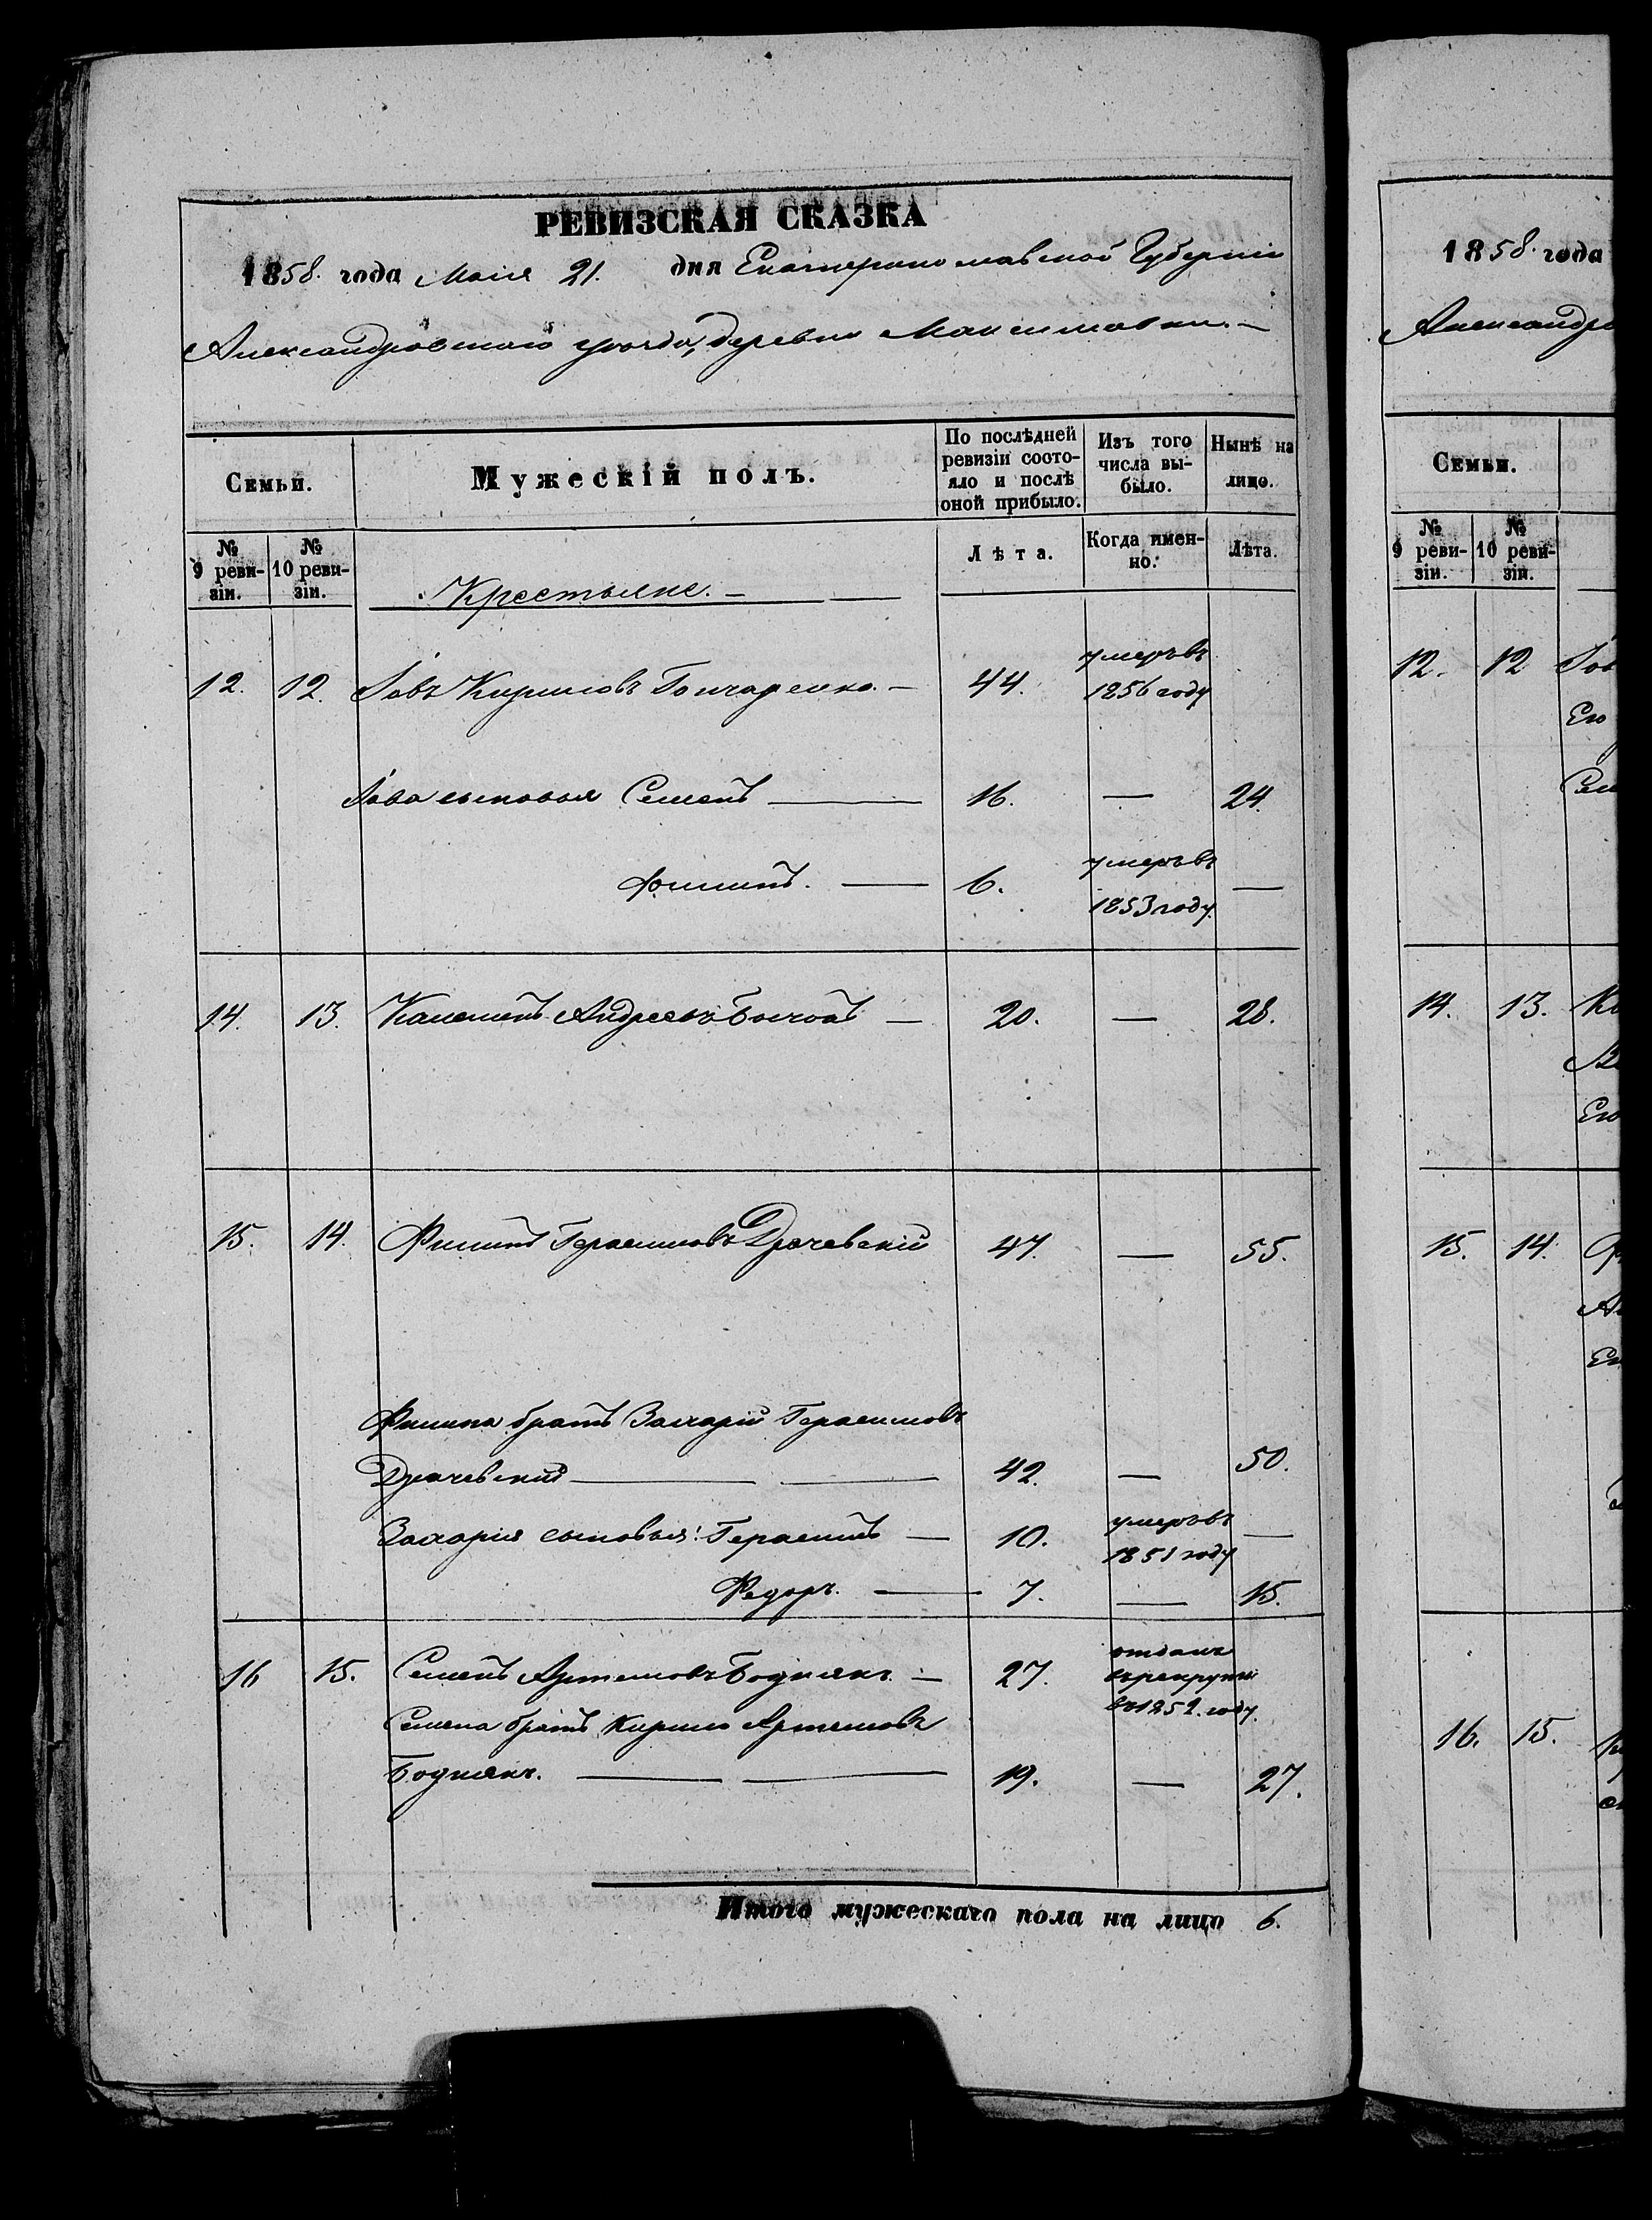 РЕВИЗСКАЯ СКАЗКА
1858. года Маія 21. дня Екатеринославской Губерніи
Александровскаго уѣзда, деревни Максимовки. —
Семьи.
Мужескій полъ.
По послѣдней ревизіи состояло и послѣ оной прибыло.
Изъ того числа выбыло.
Нынѣ на лицо.
№ 9 ревизіи.
№ 10 ревизіи.
Крестьяне. —
Лѣта.
Когда именно.
Лѣта.
12. 12. Іовъ Кириловъ Гончаренко. — 44. умеръ въ 1856 году
Іова сыновья Семенъ — 16. — 24
Филипъ. — 6. умеръ въ 1853 году. —
14. 13. Андреевъ — 20. — 28.
15. 14. Филипъ Герасимовъ Драчевскій 47. — 55.
Филипа братъ Захарій Герасимовъ
Драчевскій — 42. — 50.
Захарія сыновья: Герасимъ — 10. умеръ въ 1851 году —
Федоръ. — 7. — 15.
16 15. Семенъ Артемовъ Боднякъ. — 27. отданъ въ рекруты въ 1852. году.
Семена братъ Кирило Артемовъ
Боднякъ. — 19. — 27.
Итого мужескаго пола на лицо 6.
1858. года
Александро
Семьи.
№ 9 ревизіи.
№ 10 ревизіи.
12. 12 Іов
Его
Сем
14. 13.
Его
15. 14.
16. 15.